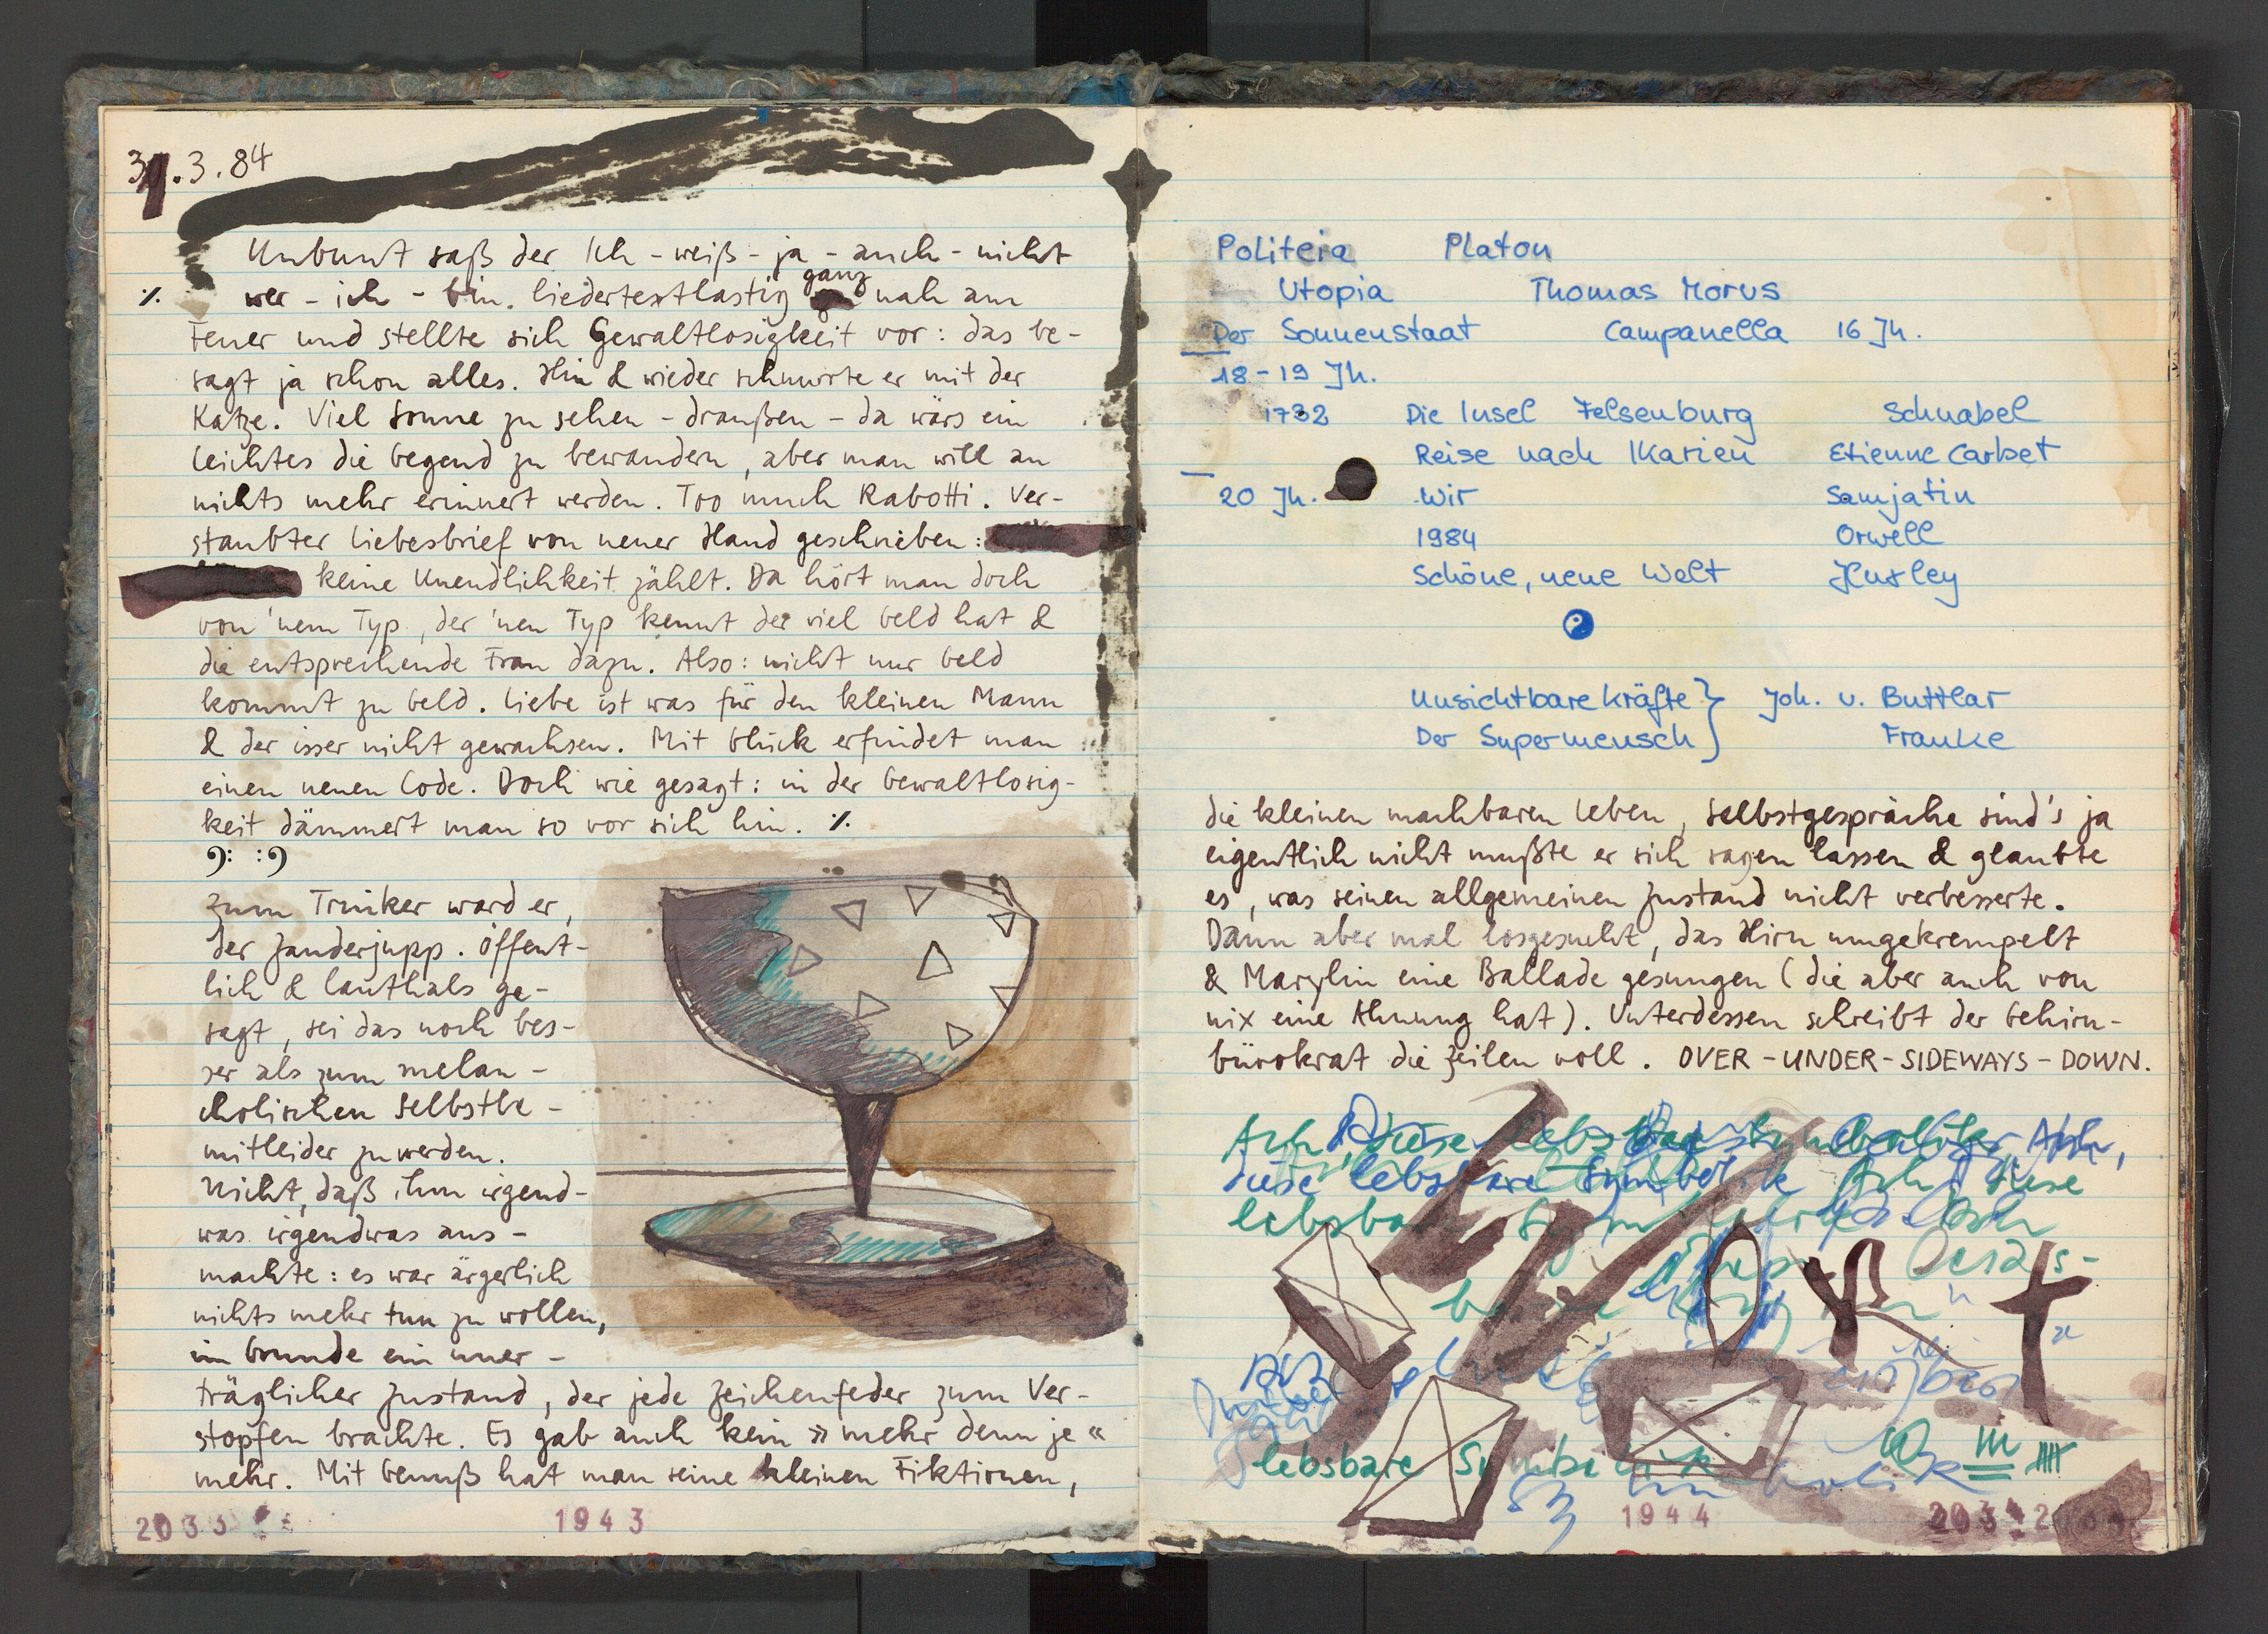 31.3.84
Unbunt saß der Ich-weiß-ja-auch-nicht
⁒ wer-ich-bin. liedertextlastig ganz nah am
Feuer und stellte sich Gewaltlosigkeit vor: das be-
sagt ja schon alles. Hin & wieder schnurrte er mit der
Katze. Viel Sonne zu sehen - draußen - da wärs ein
leichtes die Gegend zu bewandern, aber man will an
nichts mehr erinnert werden. Too much Rabotti. Ver-
staubter Liebesbrief von neuer Hand geschrieben:
keine Unendlichkeit zählt. Da hört man doch
von 'nem Typ, der 'nen Typ kennt der viel Geld hat &
die entsprechende Frau dazu. Also: nicht nur Geld
kommt zu Geld. Liebe ist was für den kleinen Mann
& der isser nicht gewachsen. Mit Glück erfindet man
einen neuen Code. Doch wie gesagt: in der Gewaltlosig-
keit dämmert man so vor sich hin. ⁒
Zum Trinker ward er,
der Zanderjupp. Öffent-
lich & lauthals ge-
sagt, sei das noch bes-
ser als zum melan-
cholischen Selbstbe-
mitleider zu werden.
Nicht, daß ihm irgend-
was irgendwas aus-
machte: es war ärgerlich
nichts mehr tun zu wollen,
im Grunde ein uner-
träglicher Zustand, der jede Zeichenfeder zum Ver-
stopfen brachte. Es gab auch kein »mehr denn je«
mehr. Mit Genuß hat man seine kleinen Fiktionen,
2033 1943
Politeia Platon
Utopia Thomas Morus
Der Sonnenstaat Campanella 16 Jh.
18-19 Jh.
1732 Die Insel Felsenburg Schnabel
Reise nach Ikarien Etienne Carbet
20 Jh. Wir Samjatin
1984 Orwell
Schöne, neue Welt Huxley
Unsichtbare Kräfte } Joh. v. Buttlar
Der Supermensch } Franke
die kleinen machbaren Leben, Selbstgespräche sind's ja
eigentlich nicht mußte er sich sagen lassen & glaubte
es, was seinen allgemeinen Zustand nicht verbesserte.
Dann aber mal losgesucht, das Hirn umgekrempelt
& Marylin eine Ballade gesungen (die aber auch von
nix eine Ahnung hat). Unterdessen schreibt der Gehirn-
bürokrat die Zeilen voll. OVER-UNDER-SIDEWAYS-DOWN.
Ach, diese Ach,
diese lebsbare Symbolik Ach, diese
lebsbare
lebsbare Symbolik
1944 2034